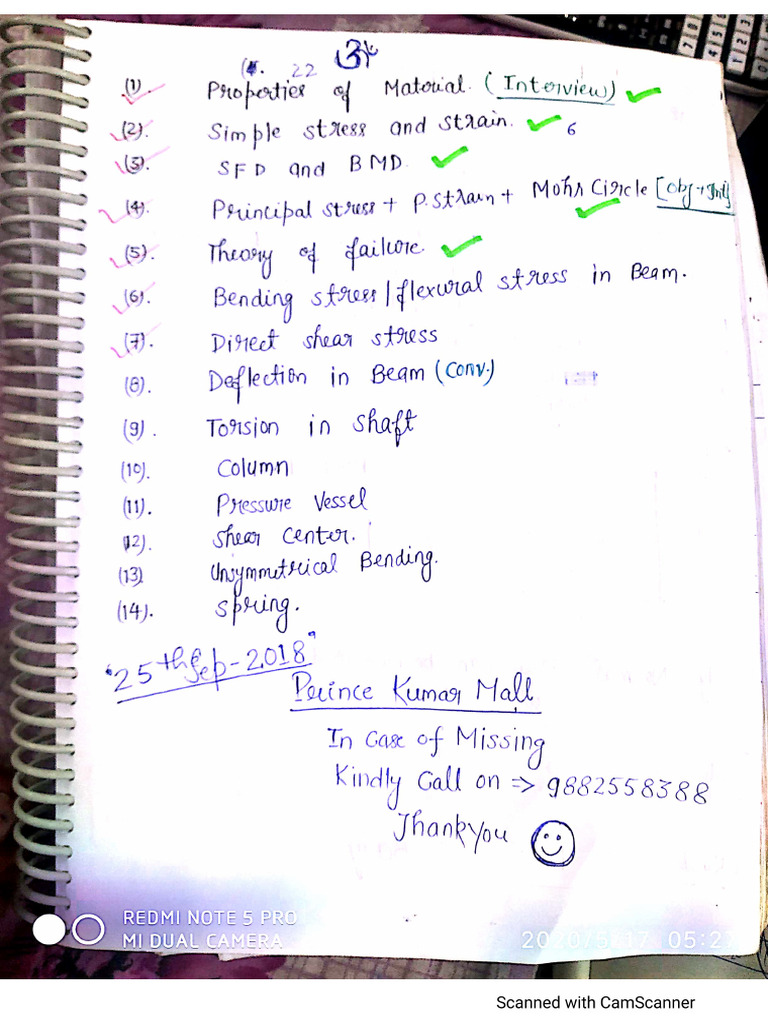 ॐ
22
(1). Properties of Material. (Interview)
(2). Simple stress and strain. 6
(3). SFD and BMD.
(4). Principal stress + P.strain + Mohr Circle [obj + Int]
(5). Theory of failure.
(6). Bending stress/flexural stress in Beam.
(7). Direct shear stress
(8). Deflection in Beam (Conv.)
(9). Torsion in shaft
(10). Column
(11). Pressure Vessel
12). Shear Center.
(13) Unsymmetrical Bending.
(14). Spring.
"25th Sep-2018"
Prince Kumar Mall
In Case of Missing
Kindly Call on => 9882558388
Thankyou
REDMI NOTE 5 PRO
MI DUAL CAMERA
2020/5/17 05:27
Scanned with CamScanner